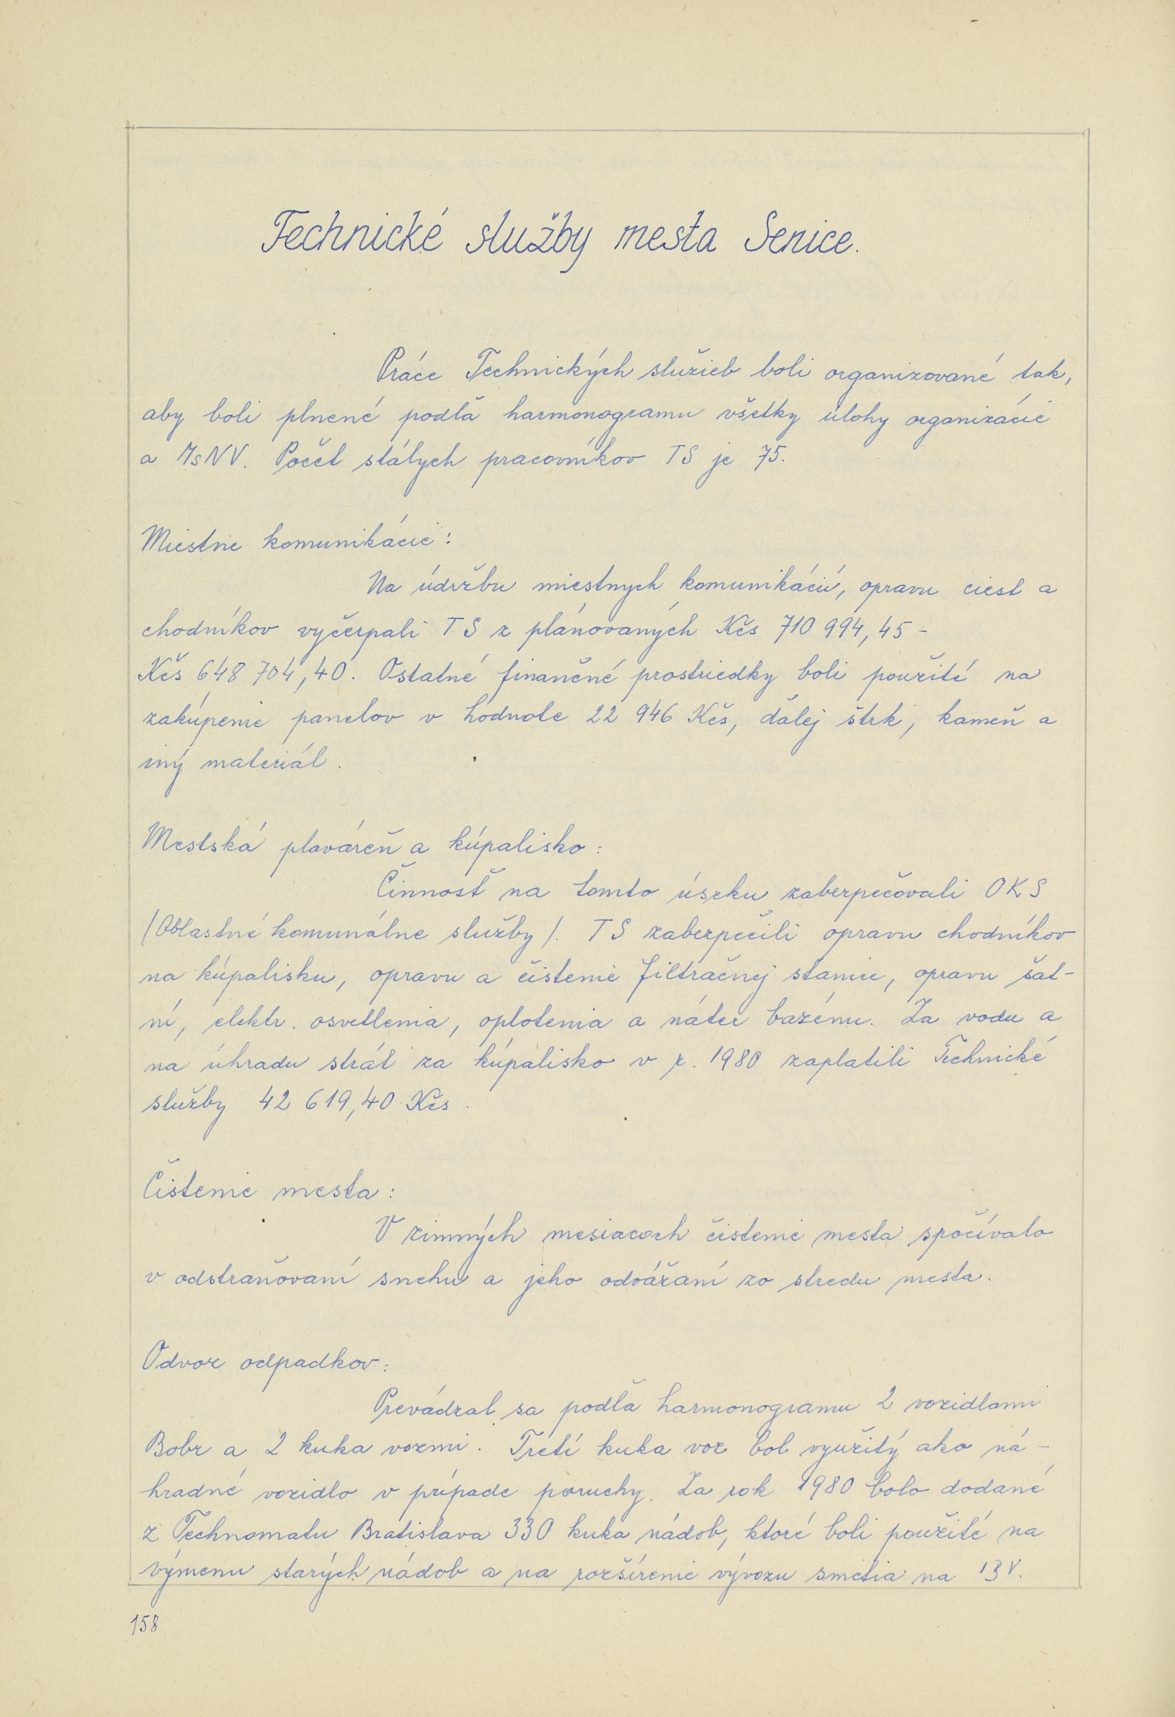 Technické služby mesta Senice.
Práce Technických služieb boli organizované tak,
aby boli plnené podľa harmonogramu všetky úlohy organizácie
a MsNV. Počet stálych pracovníkov TS je 75.
Miestne komunikácie:
Na údržbu miestnych komunikácií, opravu ciest a
chodníkov vyčerpali TS z plánovaných Kčs 710 994,45 -
Kčs 648 704,40. Ostatné finančné prostriedky boli použité na
zakúpenie panelov v hodnote 22 946 Kčs, ďalej štrk, kameň a
iný materiál.
Mestská plaváreň a kúpalisko:
Činnosť na tomto úseku zabezpečovali OKS
/Oblastné komunálne služby/. TS zabezpečili opravu chodníkov
na kúpalisku, opravu a čistenie filtračnej stanice, opravu šat-
ní, elektr. osvetlenia, oplotenia a náter bazénu. Za vodu a
na úhradu strát za kúpalisko v r. 1980 zaplatili Technické
služby 42 619,40 Kčs.
Čistenie mesta:
V zimných mesiacoch čistenie mesta spočívalo
v odstraňovaní snehu a jeho odvážaní zo stredu mesta.
Odvoz odpadkov:
Prevádzal sa podľa harmonogramu 2 vozidlami
Bobr a 2 kuka vozmi. Tretí kuka voz bol využitý ako ná-
hradné vozidlo v prípade poruchy. Za rok 1980 bolo dodané
z Technomatu Bratislava 330 kuka nádob, ktoré boli použité na
výmenu starých nádob a na rozšírenie vývozu smetia na
158